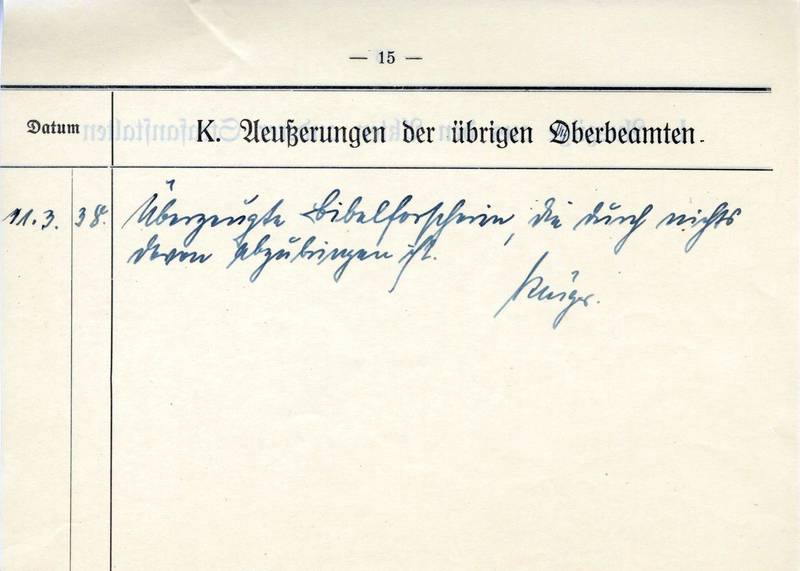 — 15 —
Datum
K. Aeußerungen der übrigen Oberbeamten.
11.3. 38. Überzeugte Bibelforscherin, die durch nichts
davon abzubringen ist.